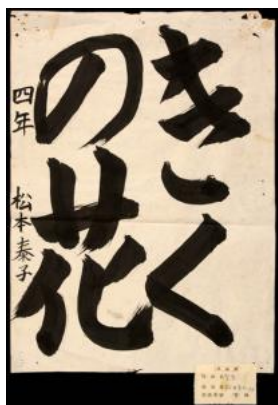 きく
の花
四年 松本泰子